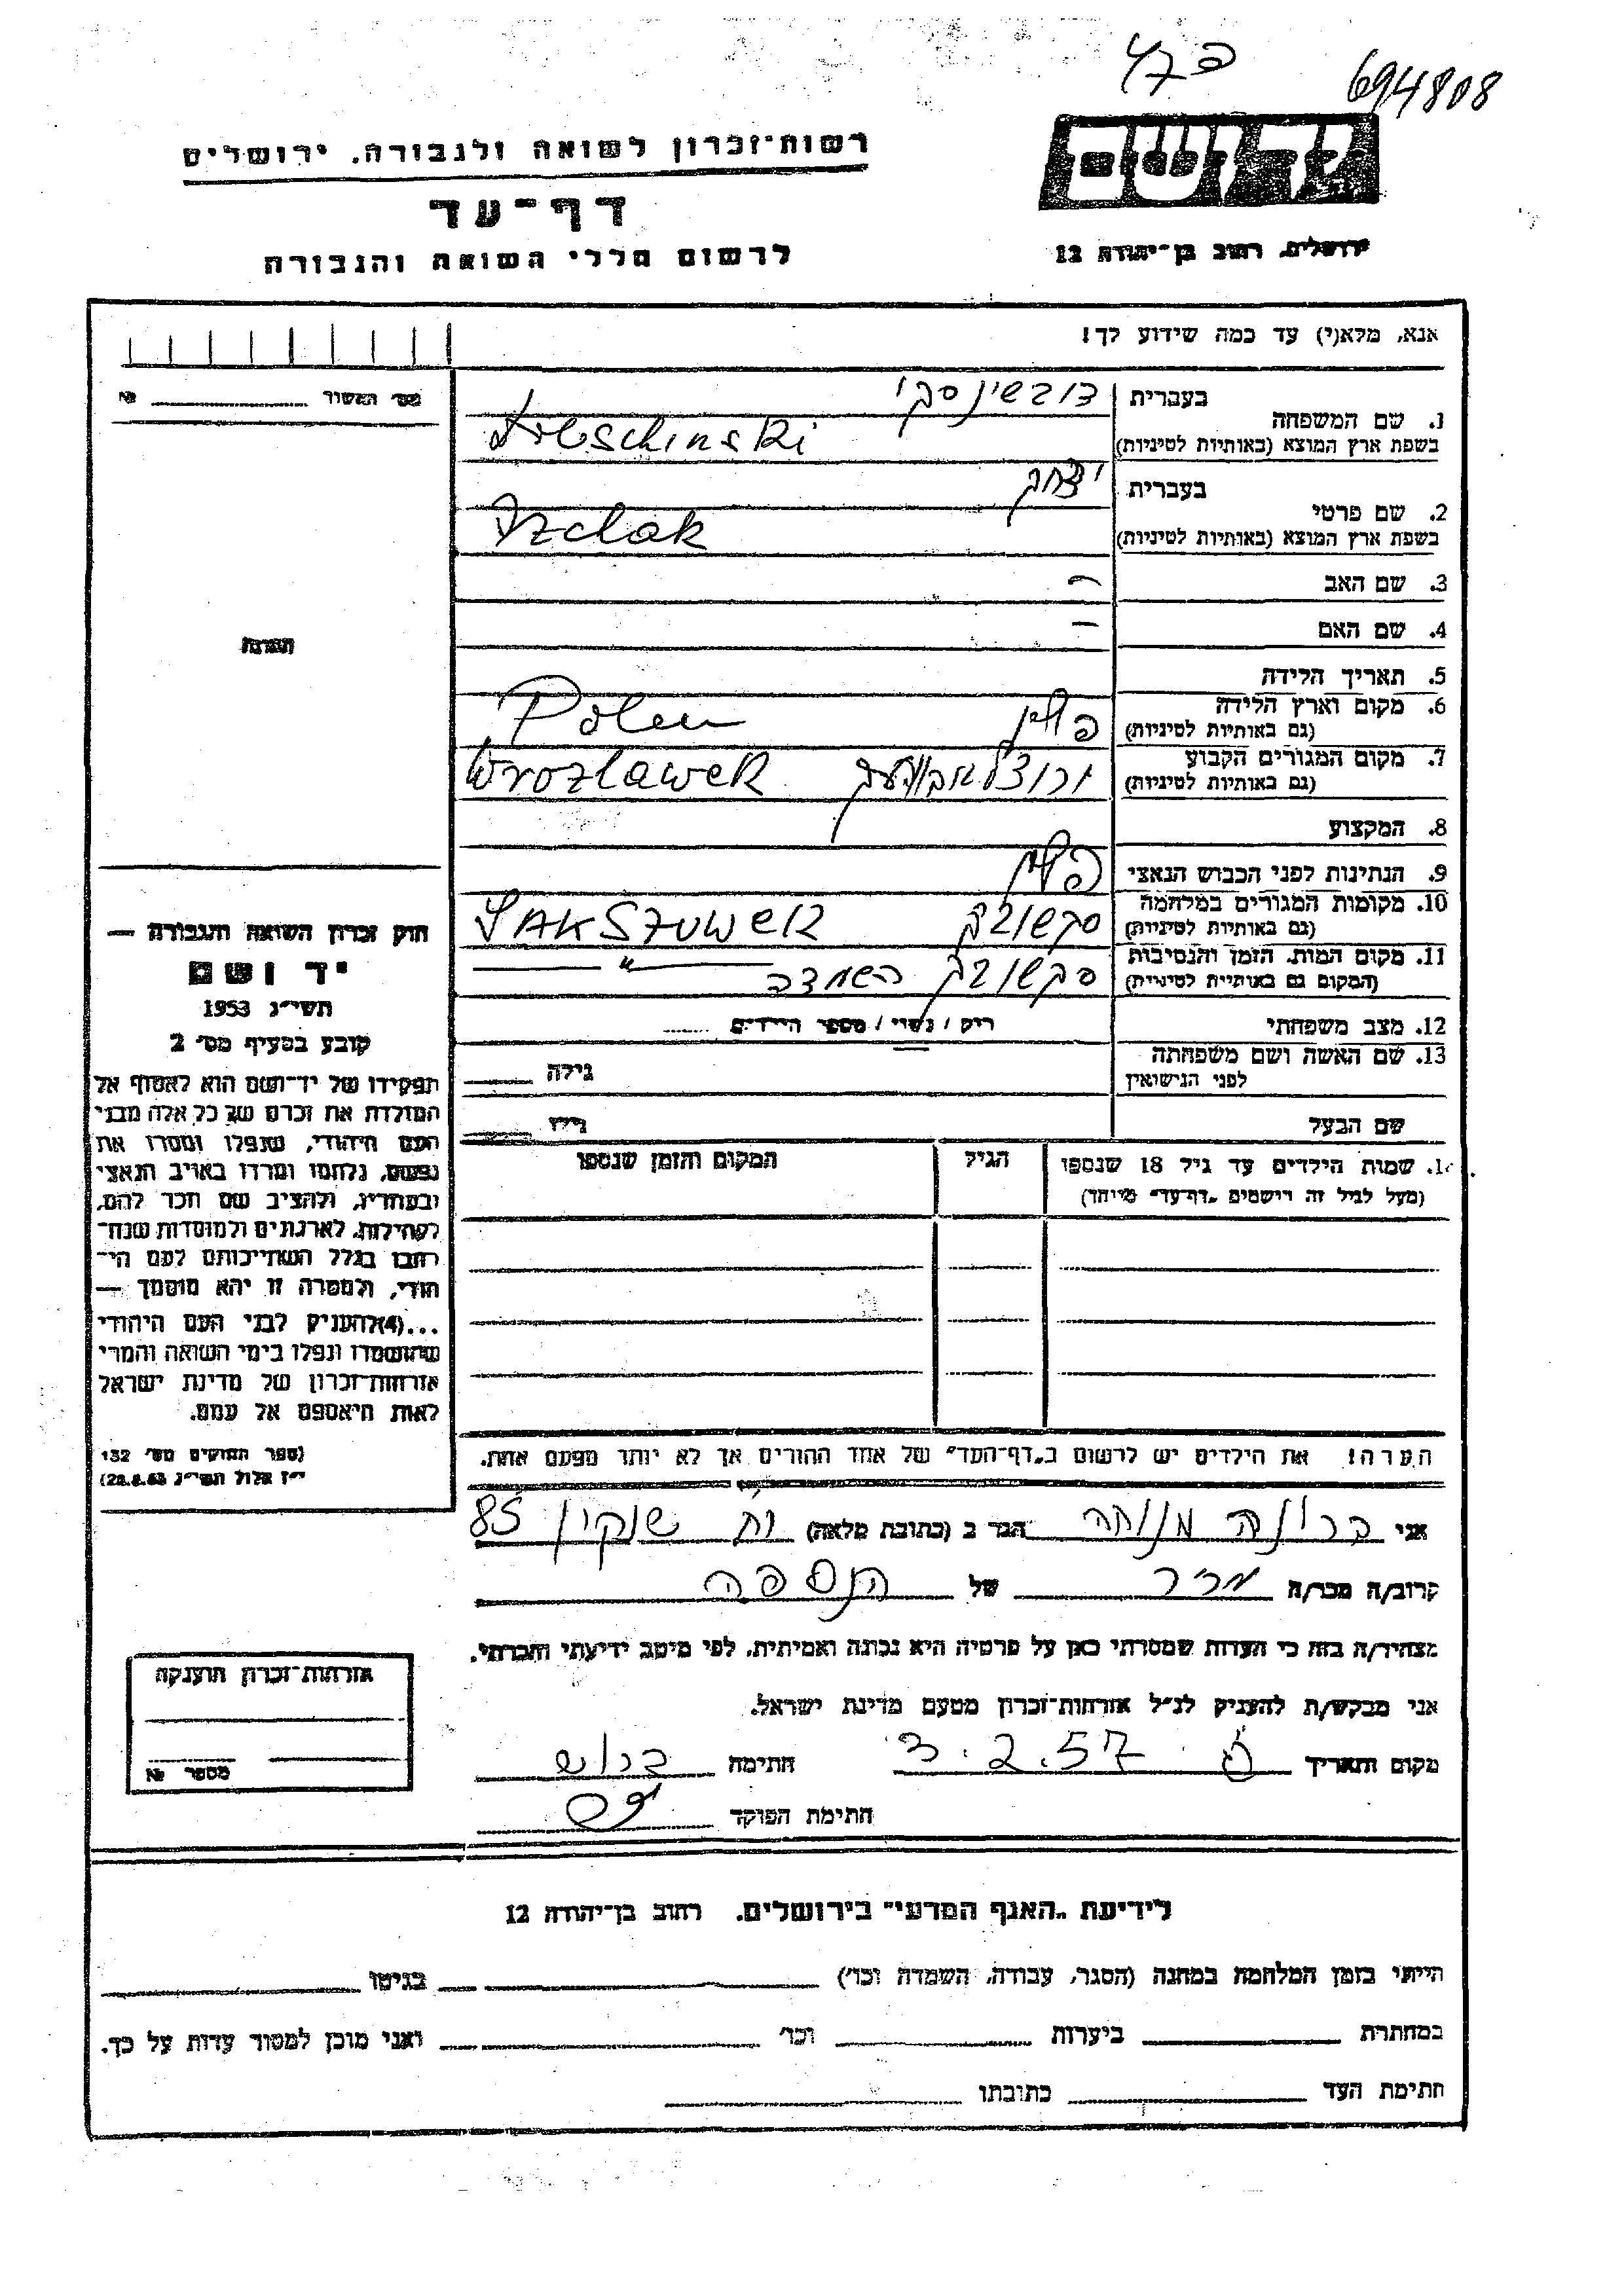 694808
רשות־זכרון לשואה ולגבורה, ירושלים
דף־עד
לרשום חללי השואה והגבורה
ירושלים, רחוב בן־יהודה 12
אנא, מלא(י) עד כמה שידוע לך!
מס׳ האשור №
בעברית
1. שם המשפחה
בשפת ארץ המוצא (באותיות לטיניות)
דובשינסקי
בעברית
2. שם פרטי
בשפת ארץ המוצא (באותיות לטיניות)
יצחק
Izchak
3. שם האב —
4. שם האם —
5. תאריך הלידה
6. מקום וארץ הלידה
(גם באותיות לטיניות)
פולין Polen
7. מקום המגורים הקבוע
(גם באותיות לטיניות)
Wrozlawek
8. המקצוע
9. הנתינות לפני הכבוש הנאצי
פולין
10. מקומות המגורים במלחמה
(גם באותיות לטיניות)
SAKSzuwek
11. מקום המות, הזמן והנסיבות
(המקום גם באותיות לטיניות)
השמדה — " —
12. מצב משפחתי
רוק / נשוי / מספר הילדים
13. שם האשה ושם משפחתה
לפני הנישואין
גילה
שם הבעל
גילו
14. שמות הילדים עד גיל 18 שנספו
(מעל לגיל זה רושמים „דף־עד” מיוחד)
הגיל
המקום והזמן שנספו
הערה! את הילדים יש לרשום ב„דף־העד” של אחד ההורים אך לא יותר מפעם אחת.
תמונה
חוק זכרון השואה והגבורה —
יד ושם
תשי״ג 1953
קובע בסעיף מס׳ 2
תפקידו של יד־ושם הוא לאסוף אל
המולדת את זכרם של כל אלה מבני
העם היהודי, שנפלו ומסרו את
נפשם, נלחמו ומרדו באויב הנאצי
ובעוזריו, ולהציב שם וזכר להם,
לקהילות, לארגונים ולמוסדות שנח־
רבו בגלל השתייכותם לעם הי־
הודי, ולמטרה זו יהא מוסמך —
...(4) להעניק לבני העם היהודי
שהושמדו ונפלו בימי השואה והמרי
אזרחות־זכרון של מדינת ישראל
לאות היאספם אל עמם.
(ספר החוקים מס׳ 132
י״ז אלול תשי״ג 28.8.53)
אני מנוחה הגר ב (כתובת מלאה) שנקין 85
קרוב/ה מכר/ה מכר של הנספה
מצהיר/ה בזה כי העדות שמסרתי כאן על פרטיה היא נכונה ואמיתית, לפי מיטב ידיעתי והכרתי.
אני מבקש/ת להעניק לנ״ל אזרחות־זכרון מטעם מדינת ישראל.
מקום ותאריך 3.2.57 חתימה
חתימת הפוקד
אזרחות־זכרון הוענקה
מספר №
לידיעת „האגף המדעי” בירושלים, רחוב בן־יהודה 12
הייתי בזמן המלחמה במחנה (הסגר, עבודה, השמדה וכו׳) בגיטו
במחתרת ביערות וכו׳ ואני מוכן למסור עדות על כך.
חתימת העד כתובתו